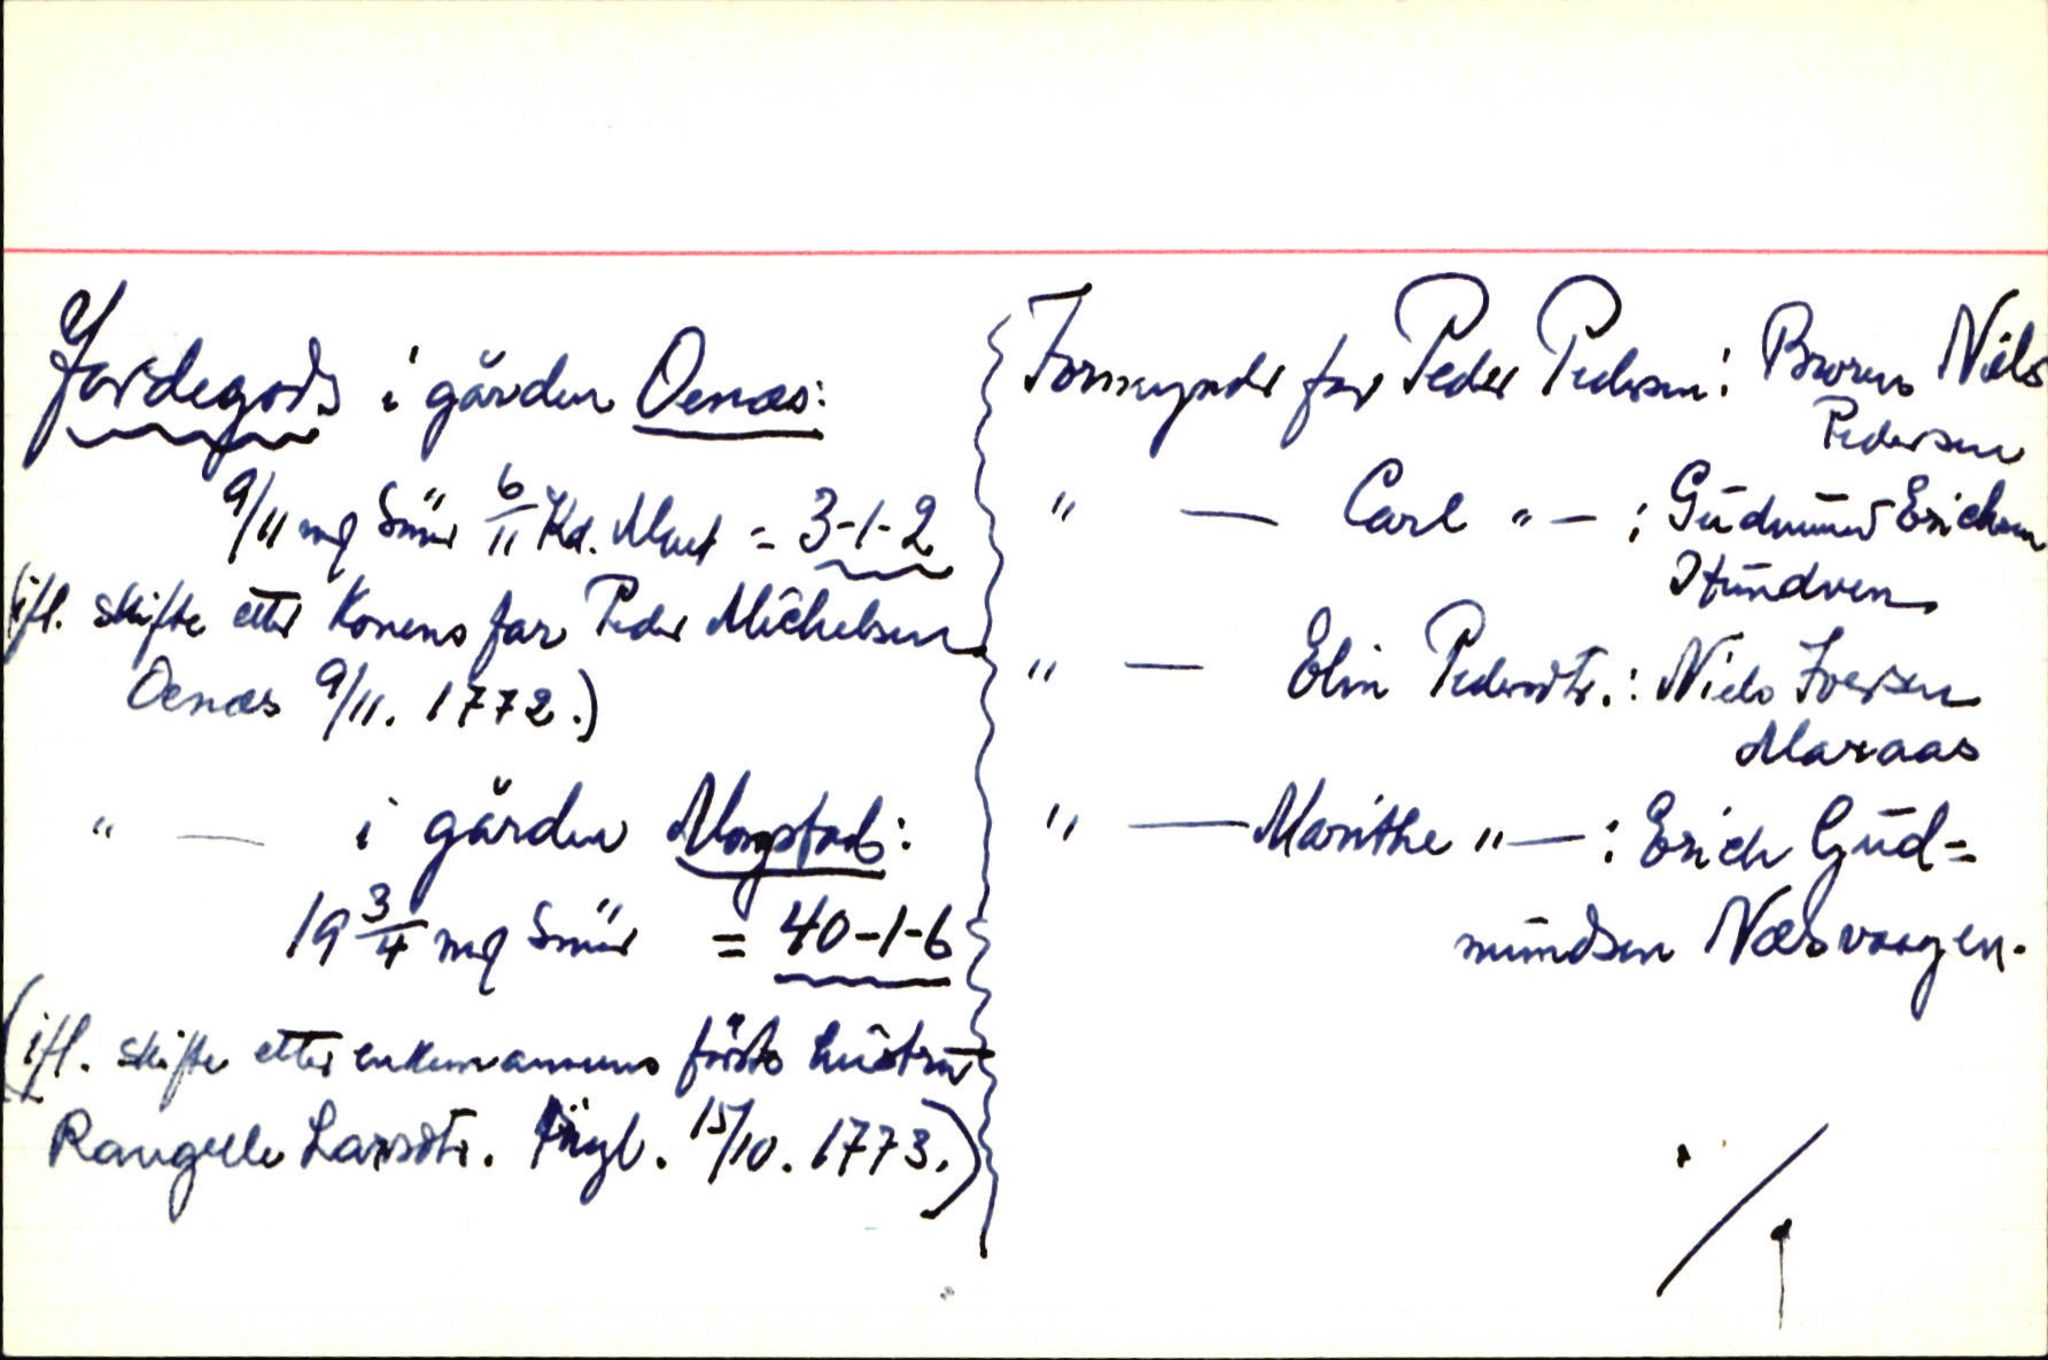 Jordegods i gården Oenæs:
9/11 mg Smör 6/11 Kd. Malt = 3-1-2
(ifl. skifte etter Konens far Peder Michelsen
Oenæs 9/11. 1772.)
" — i gården Mogstad:
19 3/4 mg Smör = 40-1-6
(ifl. skifte etter enkemannens første hustru
Rangelle Larsdtr. tingl. 15/10. 1773.)
Formynder for Peder Pedersen: Broren Nils
Pedersen
" — Carl " — : Gudmund Erichsen
Hundven
" — Elin Pedersdtr.: Niels Iversen
Maraas
" — Marithe " — : Erich Gud=
mundsen Næsvaagen.